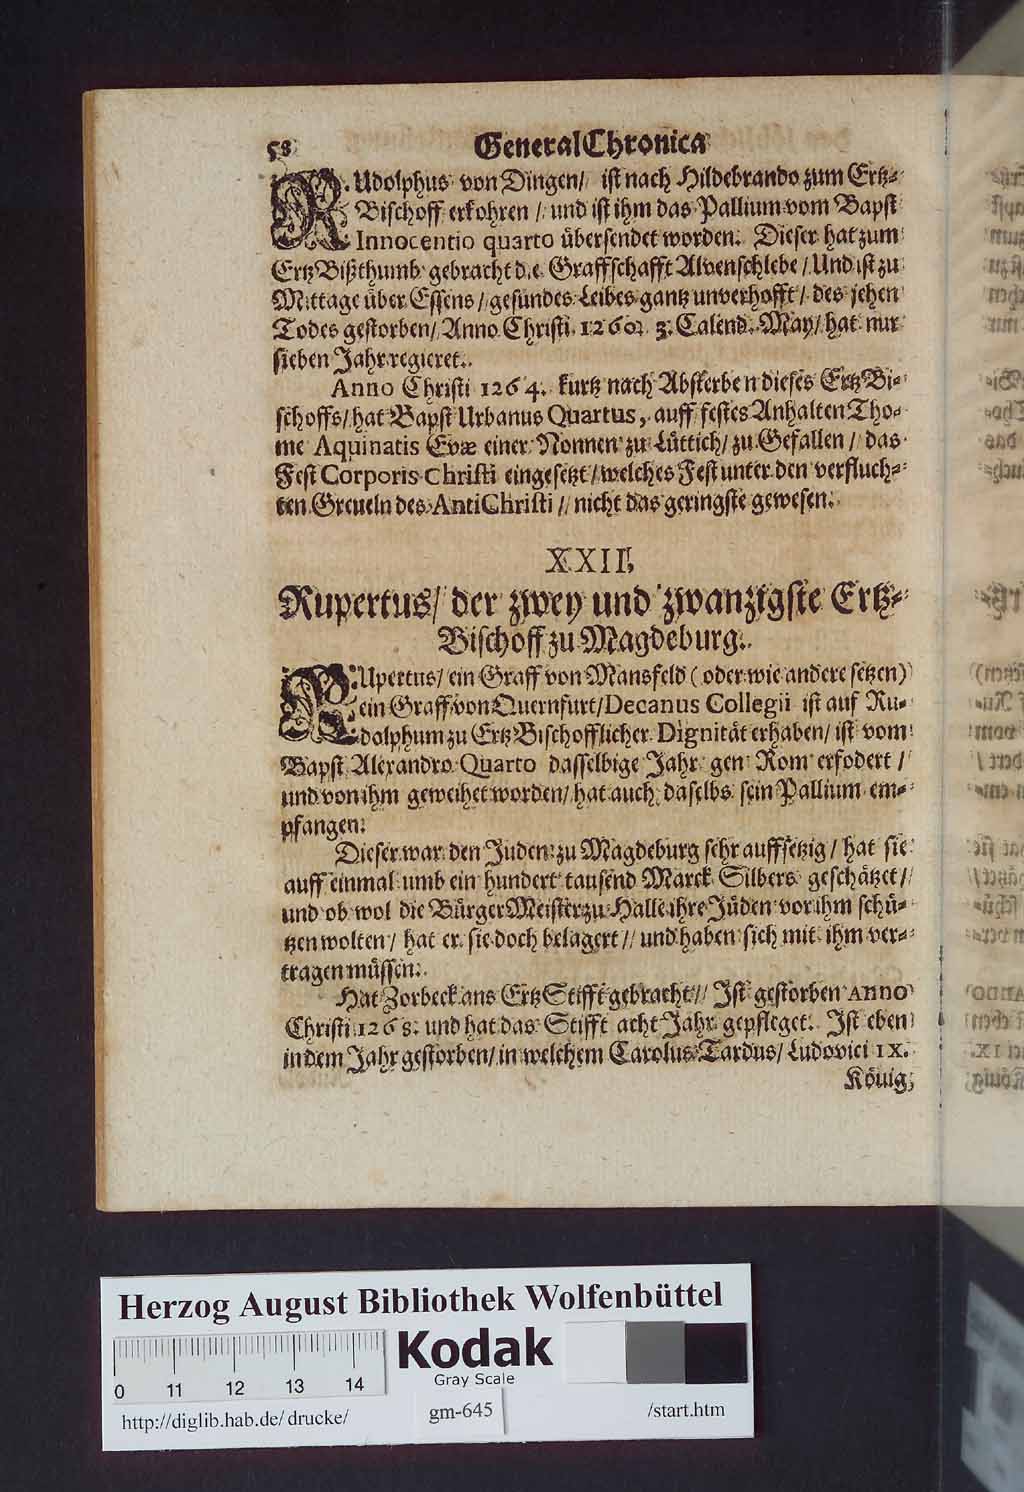 58 General Chronica
RUdolphus von Dingen/ ist nach Hildebrando zum Ertz-
Bischoff erkohren / und ist ihm das Pallium vom Bapst
Innocentio quarto übersendet worden. Dieser hat zum
ErtzBißthumb gebracht die Graffschafft Alvenschlebe/ Und ist zu
Mittage über Essens/ gesundes Leibes gantz unverhofft/ des jehen
Todes gestorben/ Anno Christi 1260. 3. Calend. May/ hat nur
sieben Jahr regieret.
Anno Christi 1264. kurtz nach Absterben dieses ErtzBi-
schoffs/ hat Bapst Urbanus Quartus, auff festes Anhalten Tho-
me Aquinatis Evæ einer Nonnen zu Lüttich/ zu Gefallen/ das
Fest Corporis Christi eingesetzt/ welches Fest unter den verfluch-
ten Greueln des AntiChristi/ nicht das geringste gewesen.
XXII.
Rupertus/ der zwey und zwanzigste Ertz-
Bischoff zu Magdeburg.
RUpertus/ ein Graff von Mansfeld (oder wie andere setzen)
ein Graff von Quernfurt/ Decanus Collegii ist auf Ru-
dolphum zu ErtzBischofflicher Dignität erhaben/ ist vom
Bapst Alexandro Quarto dasselbige Jahr gen Rom erfodert /
und von ihm geweihet worden/ hat auch daselbs sein Pallium em-
pfangen.
Dieser war den Juden zu Magdeburg sehr auffsetzig/ hat sie
auff einmal umb ein hundert tausend Marck Silbers geschätzet/
und ob wol die BürgerMeister zu Halle ihre Jüden vor ihm schü-
tzen wolten/ hat er sie doch belagert/ und haben sich mit ihm ver-
tragen müssen.
Hat Zorbeck ans ErtzStifft gebracht/ Ist gestorben Anno
Christi 1268. und hat das Stifft acht Jahr gepfleget. Ist eben
in dem Jahr gestorben/ in welchem Carolus Tardus/ Ludovici IX.
König
Herzog August Bibliothek Wolfenbüttel
Kodak
Gray Scale
0 11 12 13 14
http://diglib.hab.de/drucke/ gm-645 /start.htm